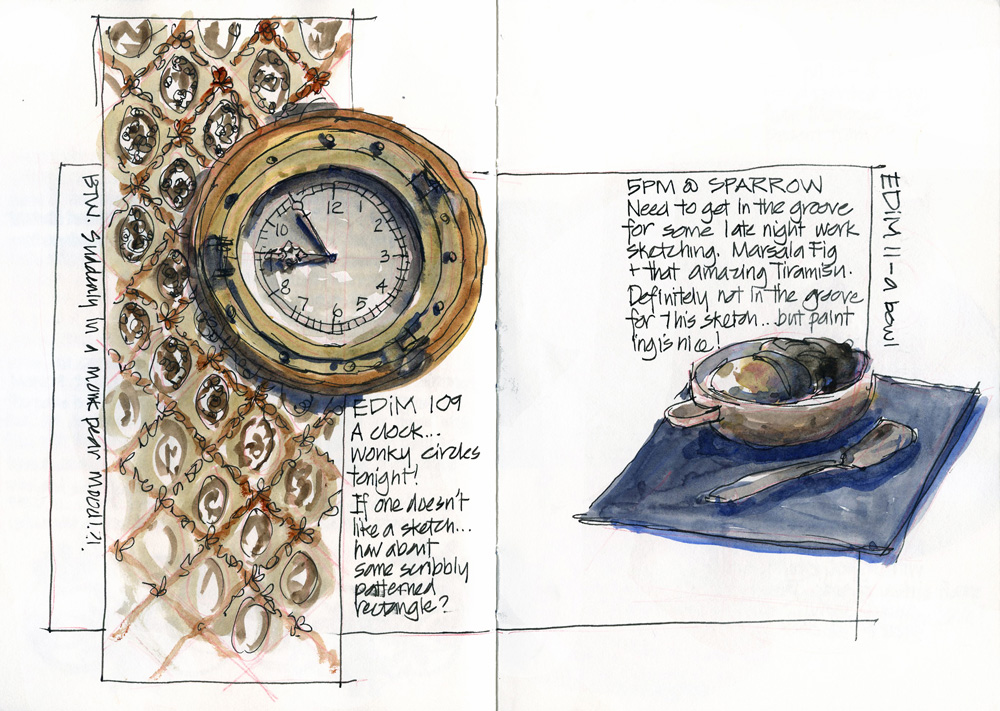 BTW: Suddenly in a mood!?!
12
1
10
2
3
4
8
7
5
6
EDiM 109
A clock...
wonky circles
tonight!
If one doesn't
like a sketch...
how about
some scribbly
patterned
rectangle?
5PM @ SPARROW
Need to get in the groove
for some late night work
sketching. Marsala Fig
+ that amazing Tiramisu.
Definitely not in the groove
for this sketch...but paint
ing is nice!
EDiM 11-a bowl